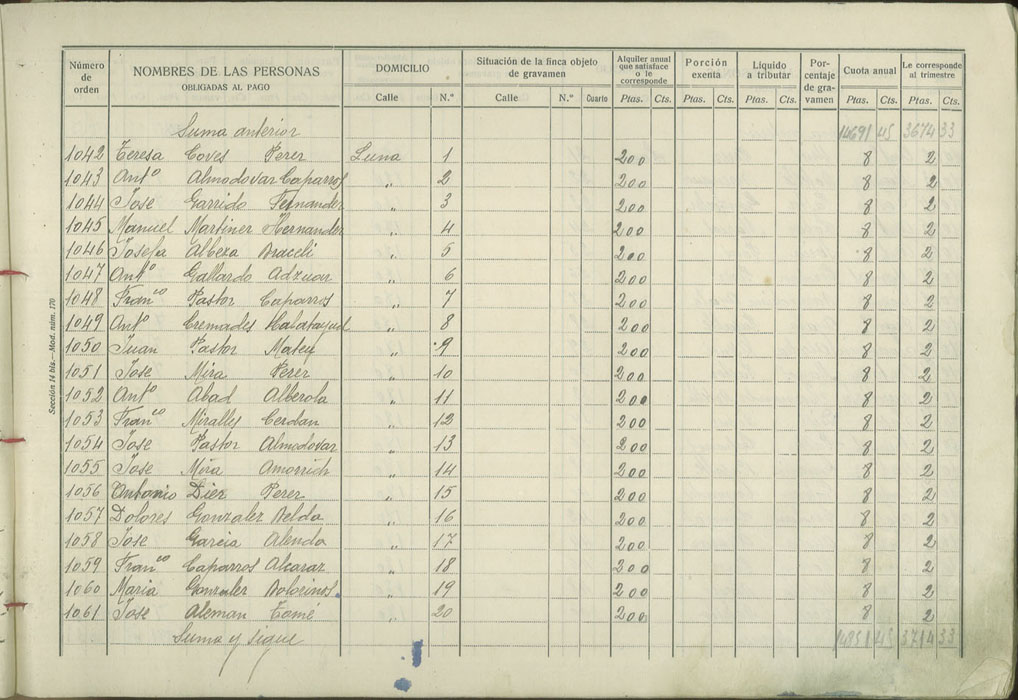 Número de orden | NOMBRES DE LAS PERSONAS OBLIGADAS AL PAGO | DOMICILIO | Situación de la finca objeto de gravamen | Alquiler anual que satisface o le corresponde | Porción exenta | Líquido a tributar | Porcentaje de gravamen | Cuota anual | Le corresponde al trimestre
Calle | N.º | Calle | N.º | Cuarto | Ptas. | Cts. | Ptas. | Cts. | Ptas. | Cts. | Ptas. | Cts. | Ptas. | Cts.
Suma anterior 14691 45 3674 33
1042 Teresa Coves Perez Luna 1 200 8 2
1043 Antº Almodovar Caparros " 2 200 8 2
1044 Jose Garrido Fernander " 3 200 8 2
1045 Manuel Martiner Hernander " 4 200 8 2
1046 Josefa Albeza " 5 200 8 2
1047 Antº Gallardo Adzuar " 6 200 8 2
1048 Franco Pastor Caparros " 7 200 8 2
1049 Antº Cremades " 8 200 8 2
1050 Juan Pastor Mateu " 9 200 8 2
1051 Jose Mira Perer " 10 200 8 2
1052 Antº Abad Alberola " 11 200 8 2
1053 Franco Miralles Cerdan " 12 200 8 2
1054 Jose Pastor Almodovar " 13 200 8 2
1055 Jose Mira Amorrich " 14 200 8 2
1056 Antonio Dier Perer " 15 200 8 2
1057 Dolores Gonzaler Belda " 16 200 8 2
1058 Jose Garcia Alenda " 17 200 8 2
1059 Franco Caparros Alcarar " 18 200 8 2
1060 Maria Gonzaler " 19 200 8 2
1061 Jose Aleman Tomé " 20 200 8 2
Suma y sigue 14851 45 3714 33
Sección 14 bis.—Mod. núm. 170